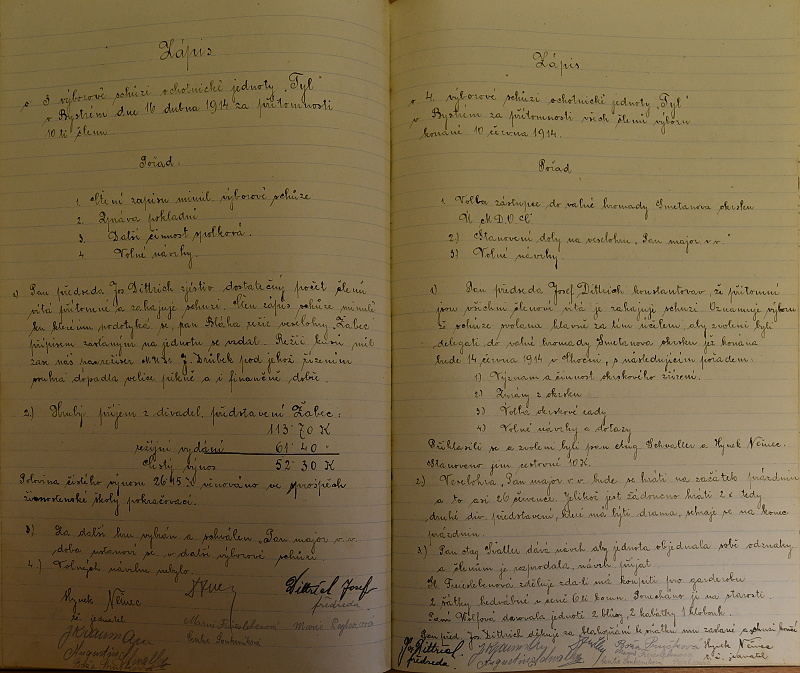 Zápis
o 3 výborové schůzi ochotnické jednoty „Tyl"
v Bystrém dne 16 dubna 1914 za přítomnosti
10ti členů
Pořad.
1. Čtení zápisu minul. výborové schůze
2. Zpráva pokladní
3. Další činnost spolková.
4. Volné návrhy.
1) Pan předseda Jos Dittrich zjistiv dostatečný počet členů
vítá přítomné a zahajuje schůzi. Čten zápis schůze minulé
ku kterému podotýká se, pan Bláha režii veselohry „Žabec
přípisem zaslaným na jednotu se vzdal. Režii
zase náš J. Drůbek pod jehož řízením
souhra dopadla velice pěkně a i finančně dobře.
2.) Hrubý příjem z divadel. představení Žabec:
113·70 K
režijní vydání 61·40 "
Čistý výnos 52·30 K
Polovina čistého výnosu 26·15 K věnováno ve prospěch
živnostenské školy pokračovací.
3) Za další hru vybrán a schválen „Pan major v. v.
doba ustanoví se v další výborové schůzi
4.) Volných návrhů nebylo.
Hynek Němec
t. č. jednatel
Dittrich Josef
předseda
Zápis
o 4. výborové schůzi ochotnické jednoty „Tyl"
v Bystrém za přítomnosti všech členů výboru
konané 10 června 1914.
Pořad
1. Volba zástupce do valné hromady Smetanova okrsku
Ú. M. D. O. Č.
2) Stanovení doby na veselohru „Pan major v. v."
3) Volné návrhy
1) Pan předseda Josef Dittrich konstatovav, že přítomni
jsou všichni členové vítá je zahajuje schůzi. Oznamuje výboru
že schůze svolána hlavně za tím účelem, aby zvoleni byli
delegáti do valné hromady Smetanova okrsku jež konána
bude 14 června 1914 v Skoční, s následujícím pořadem:
1) Význam a činnost okrskového zřízení.
2) Zprávy z okrsku
3) Volba okrskové rady
4) Volné návrhy a dotazy
Přihlásili se a zvoleni byli pan Aug. Schvaller a Hynek Němec.
Stanoveno jim cestovné 10 K.
2.) Veselohra „Pan major v. v. bude se hráti na začátek prázdnin
a to asi 26 července. Jelikož jest žádoucno hráti 2 x tedy
druhé div. představení, které má býti drama, sehraje se na konec
prázdnin.
3.) Pan Aug Švaller dává návrh aby jednota objednala sobě odznaky
a členům je rozprodala, návrh přijat.
zděluje zda-li má koupiti pro garderobu
2 šátky hedvábné v ceně 6ti korun. Ponecháno jí na starosti.
Paní Wölfová darovala jednotě 2 blůzy 2 kabátky 1 klobouk.
Pan před. Jos Dittrich děkuje za blahopřání k svátku mu zaslané a schůzi končí
Jos Dittrich
předseda.
Hynek Němec
t. č. jednatel